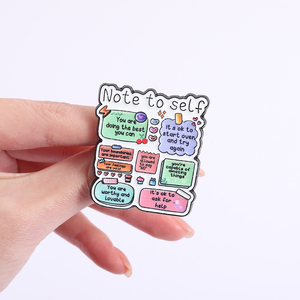 Note to self
You are
doing the best
you can
it's ok to
start over
and try
again
Your boundaries
are important
you are
allowed
to say
no
you're
capable of
amazing
things
You are
worthy and
lovable
it's ok to
ask for
help